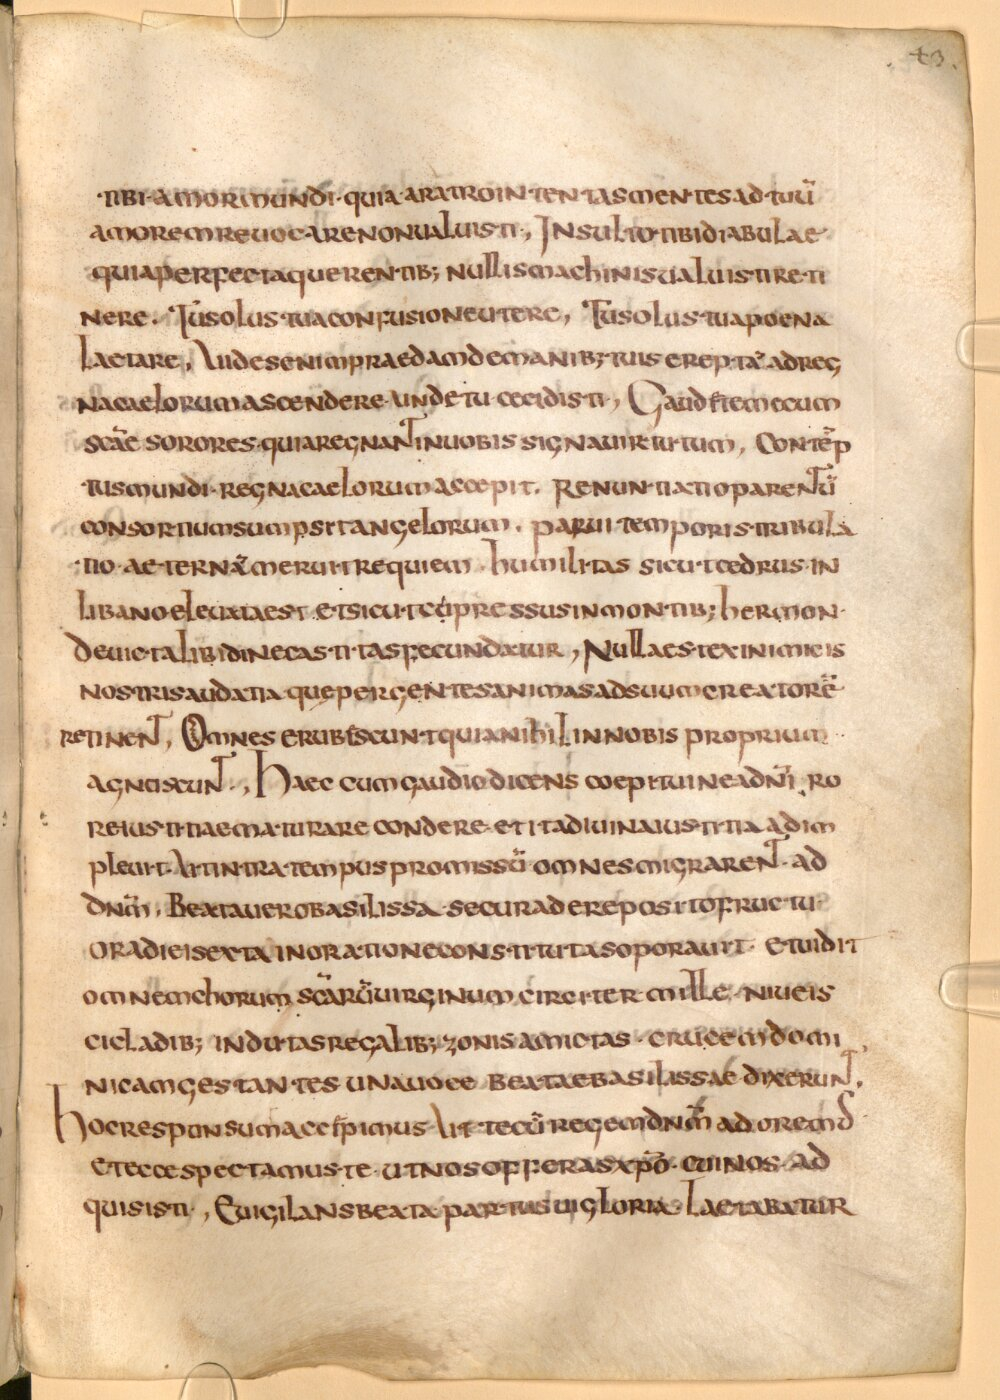 43.
tibi amor mundi quia aratro intentas mentes ad tuū
amorem reuocare non ualuisti, Insulto tibi diabulae
quia perfecta querentib; nullis machinis ualuisti reti
nere. Tu solus tua confusione utere, Tu solus tua poena
laetare, Uides enim praedam de manib; tuis ereptā ad reg
na caelorum ascendere unde tu cecidisti, Gaudete mecum
scāe sorores quia regnant in uobis signa uirtutum, Contēp
tus mundi regna caelorum accepit. Renuntiatio parentū
consortium sumpsit angelorum. parui temporis tribula
tio aeternā meruit requiem humilitas sicut cedrus in
libano eleuata est et sicut cipressus in montib; hermon
deuicta libidine castitas fecundatur, Nulla est ex inimicis
nostris audatia que pergentes animas ad suum creatorē
retinent, Omnes erubescunt quia nihil in nobis proprium
agnuscunt., Haec cum gaudio dicens coepit uineā dn̄i ro
re iustitiae maturare condere et ita diuina iustitia adim
pleuit Ut intra tempus promissū omnes migrarent ad
dnm̄. Beata uero basilissa secura de reposito fructu
ora diei sexta in oratione constituta soporauit et uidit
omnem chorum scārū uirginum circiter mille niueis
cicladib; indutas regalib; zonis amictas crucem domi
nicam gestantes una uoce beatae basilissae dixerunt,
Hoc responsum accepimus Ut tecū regem dnm̄ adorem;
et ecce spectamus te ut nos offeras xp̄o cui nos ad
quisisti, Euigilans beata partus sui gloria laetabatur